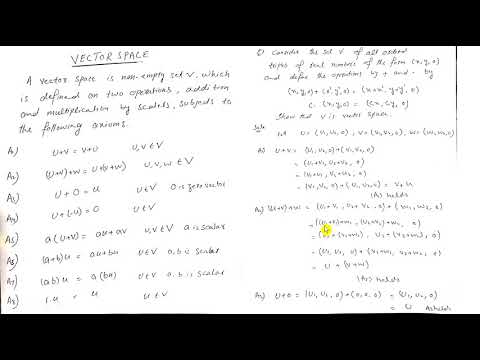 VECTOR SPACE
A vector space is non-empty set V. which
is defined on two operations, addition
and multiplication by scalars, subjects to
the following axioms.
A₁) u+v = v+u u,v ∈ V
A₂) (u+v)+w = u+(v+w) u,v,w ∈ V
A₃) u+0 = u u∈V 0 is zero vector
A₄) u+(-u) = 0 u∈V
A₅) a(u+v) = au+av u,v∈V a is scalar
A₆) (a+b)u = au+bu u∈V a,b is scalar
A₇) (ab)u = a(bu) u∈V a,b is scalar
A₈) 1.u = u u∈V
Q) Consider the set V of all ordered
triples of real numbers of the form (x,y,0)
and define the operations by + and . by
(x,y,0)+(x',y',0) = (x+x', y+y', 0)
c.(x,y,0) = (cx, cy, 0)
Show that V is vector space.
Let u = (u₁,u₂,0), v = (v₁,v₂,0), w = (w₁,w₂,0)
A₁) u+v = (u₁,u₂,0)+(v₁,v₂,0)
= (u₁+v₁, u₂+v₂, 0)
= (v₁+u₁, v₂+u₂, 0)
= (v₁,v₂,0)+(u₁,u₂,0) = v+u
(A₁) holds
A₂) (u+v)+w = (u₁+v₁, u₂+v₂, 0) + (w₁,w₂,0)
= ((u₁+v₁)+w₁, (u₂+v₂)+w₂, 0)
= (u₁+(v₁+w₁), u₂+(v₂+w₂), 0)
= (u₁,u₂,0) + (v₁+w₁, v₂+w₂, 0)
= u+(v+w)
(A₂) holds
A₃) u+0 = (u₁,u₂,0)+(0,0,0) = (u₁,u₂,0)
= u A₃ holds